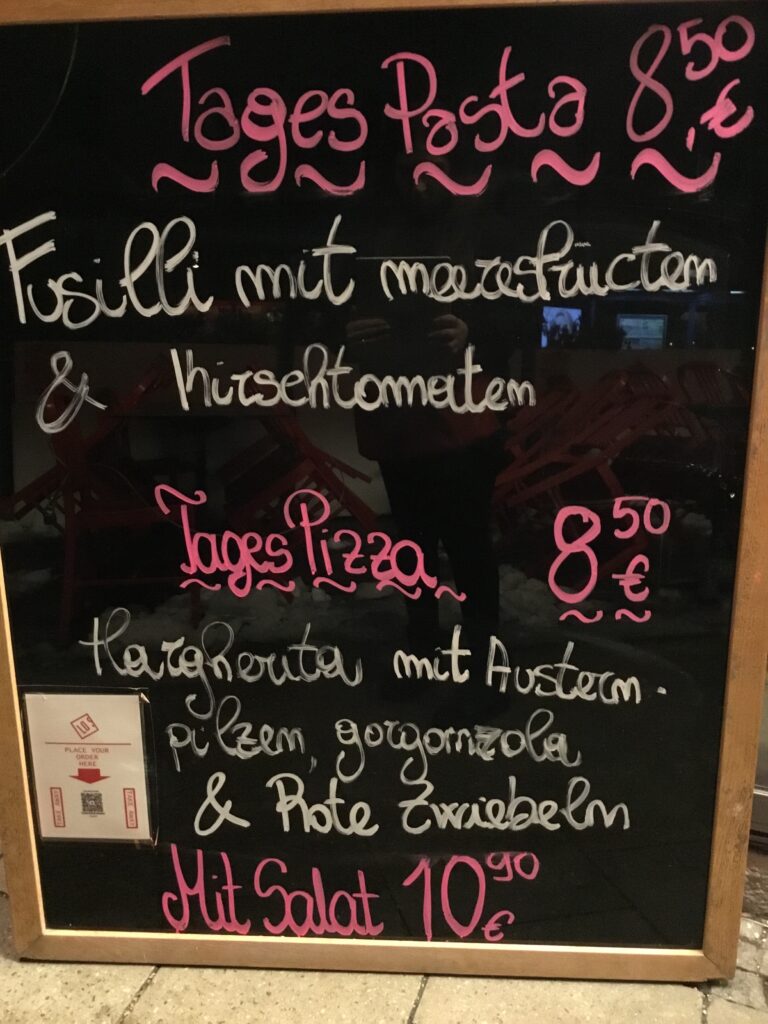 Tages Pasta 8,50 €
Fusilli mit meeresfrücten
& Kirschtomaten
Tages Pizza 8 50 €
Margherita mit Austern-
pilzen, gorgonzola
& Rote Zwiebeln
Mit Salat 10 90 €
PLACE YOUR
ORDER
HERE